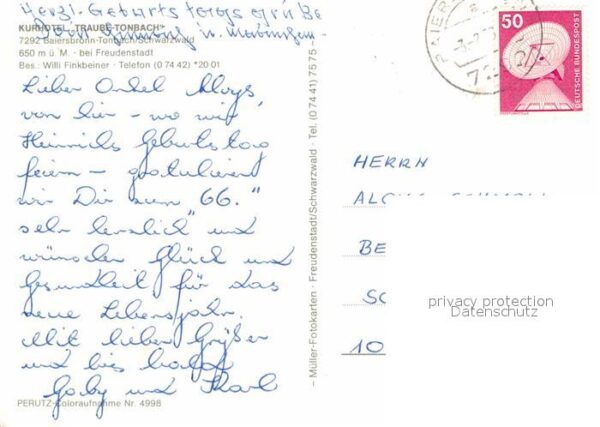 Herzl. Geburtstagsgrüße
KURHOTEL "TRAUBE-TONBACH"
7292 Baiersbronn-Tonbach/Schwarzwald
650 m ü. M. · bei Freudenstadt
Bes.: Willi Finkbeiner · Telefon (0 74 42) *20 01
Lieber Onkel Aloys,
von hier – wo wir
Heinrichs Geburtstag
feiern – gratulieren
wir Dir zum "66."
sehr herzlich und
wünschen Glück und
Gesundheit für das
neue Lebensjahr.
Mit lieben Grüßen
und bis bald
Gaby und Karl
PERUTZ-Coloraufnahme Nr. 4998
– Müller-Fotokarten · Freudenstadt/Schwarzwald · Tel. (0 74 41) 75 75 –
50
DEUTSCHE BUNDESPOST
HERRN
BE
SC
10
privacy protection
Datenschutz